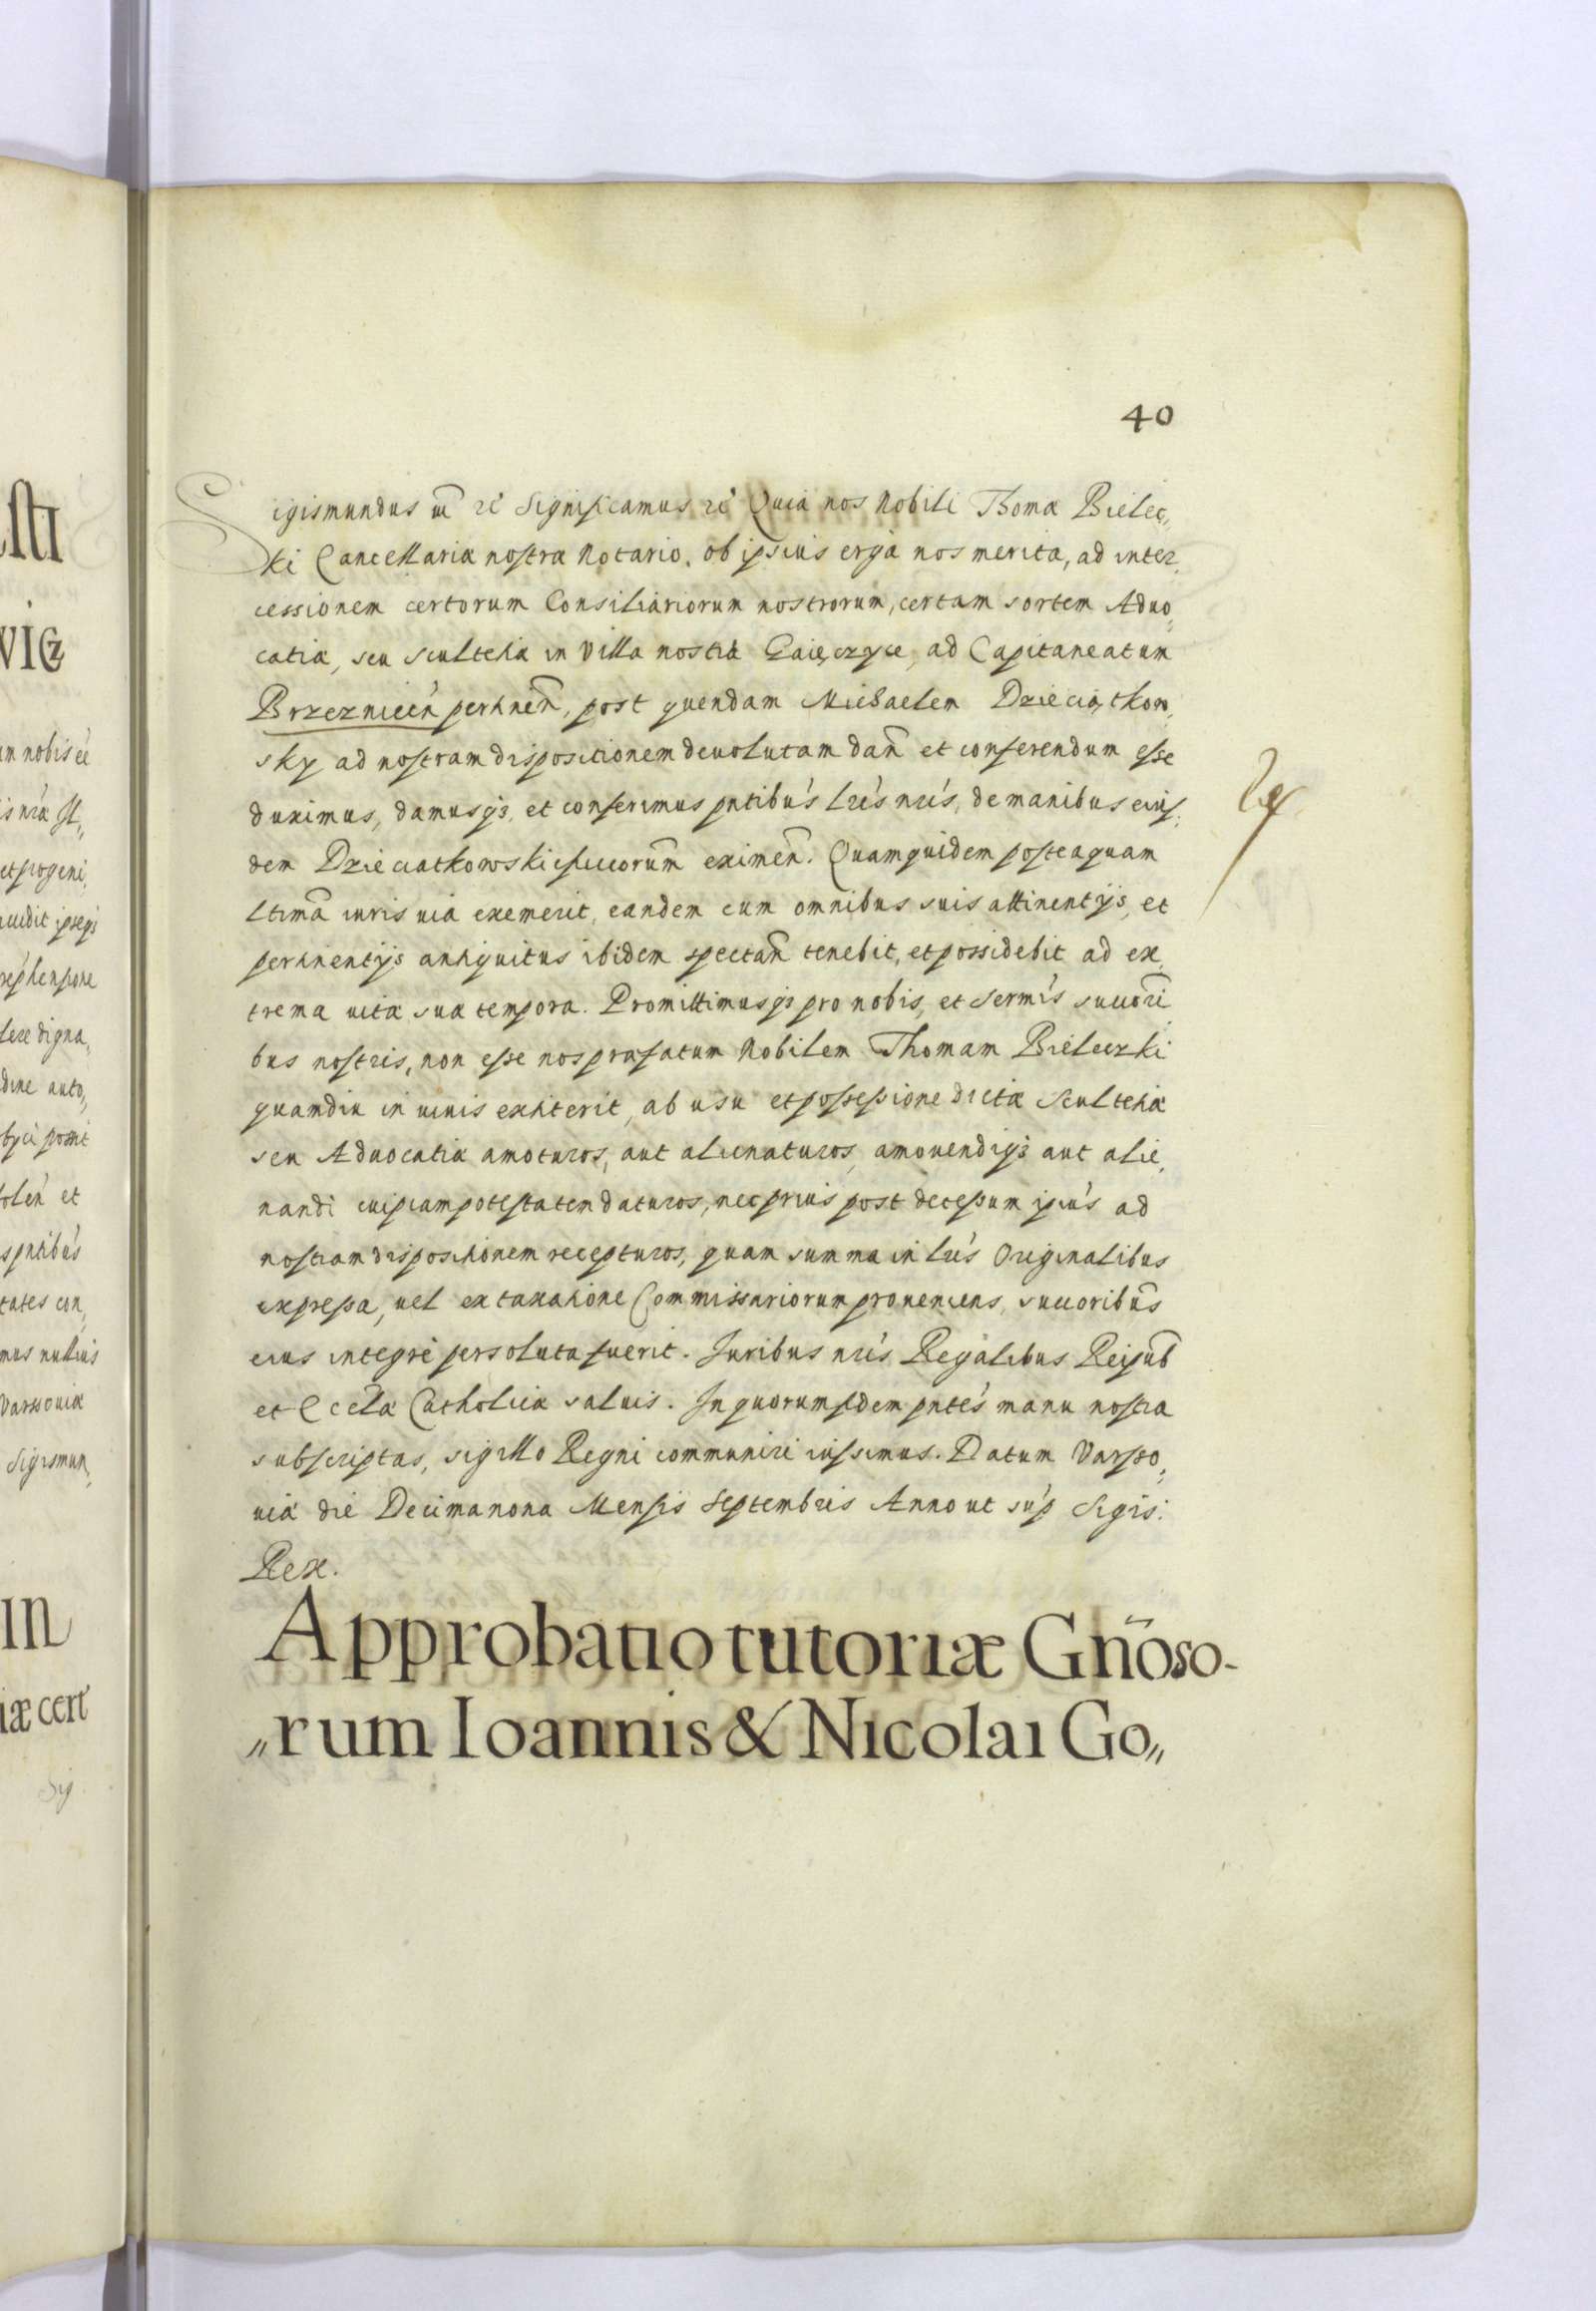 40
Sigismundus etc̃ rc̃ Significamus rc̃ Quia nos Nobili Thomæ Bielec„
ki Cancellariæ nostræ Notario, ob ipsius erga nos merita, ad inter„
cessionem certorum Consiliariorum nostrorum, certam sortem Aduo„
catiæ, seu scultetiæ in Villa nostra Gaięczyce, ad Capitaneatum
Brzezniceń pertineñ, post quendam Michaelem Dzieciątkow„
sky ad nostram dispositionem deuolutam dañ et conferendum esse
duximus, damusqз et conferimus pñtibús lrís nrís, de manibus eius„
dem Dzieciatkowski successorum̃ eximeñ. Quamquidem posteaquam
ltimã iuris uia exemerit, eandem cum omnibus suis attinentijs, et
pertinentijs antiquitus ibidem spectañ tenebit, et possidebit ad ex„
trema uitæ suæ tempora. Promittimusqз pro nobis, et Sermís succori
bus nostris, non esse nos præfatum Nobilem Thomam Bieleczki
quamdiu in uiuis extiterit, ab usu et possessione dictæ Scultetiæ
seu Aduocatiæ amoturos, aut alienaturos, amouendiqз aut alie„
nandi cuipiam potestatem daturos, nec prius post decessum ipiús ad
nostram dispositionem recepturos, quam summa in lrís Originalibus
expressa, uel ex taxatione Commissariorum proueniens, succoribũs
eius integrè persoluta fuerit. Iuribus nrís Regalibus Reipub̃
et Eccła Catholicæ saluis. In quorum fidem pñtés manu nostra
subscriptas, sigillo Regni communiri iussimus. Datum Varsso„
uiæ die Decimanona Mensis Septembris Anno ut súp Sigis:
Rex.
Approbatio tutoriæ Gñoso-
„rum Ioannis & Nicolai Go„